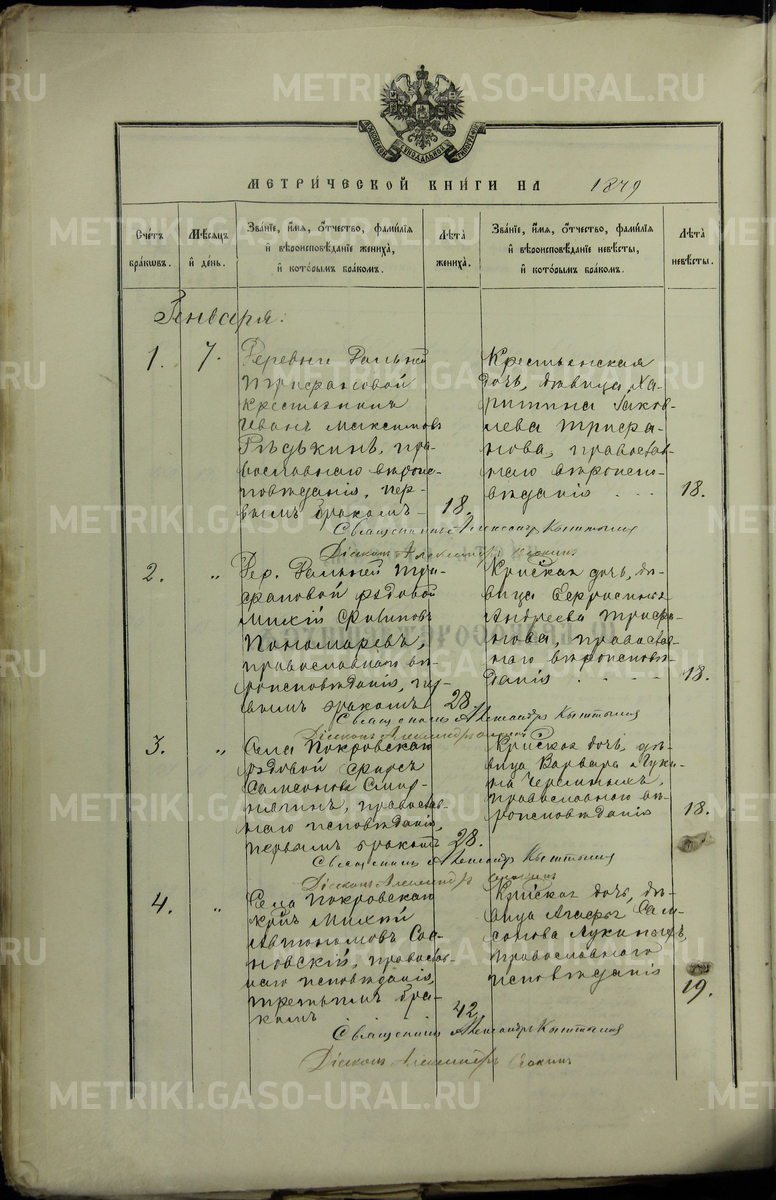 МЕТРИ́ЧЕСКОЙ КНИ́ГИ НА 1879
Сче́тъ бра́кωвъ.
Мѣ́сяцъ и҆ де́нь.
Зва́нїе, и҆́мя, ѻ҆́тчество, фами́лїя
и҆ вѣроисповѣ́данїе жениха̀,
и҆ кото́рымъ бра́комъ.
Лѣ́та жениха̀.
Зва́нїе, и҆́мя, ѻ҆́тчество, фами́лїя
и҆ вѣроисповѣ́данїе невѣ́сты,
и҆ кото́рымъ бра́комъ.
Лѣ́та невѣ́сты.
Генваря:
1. 7.
Деревни Дальней
Трифановой
крестьянинъ
Иванъ Максимовъ
Рѣдькинъ, пра-
вославнаго вѣроис-
повѣданія, пер-
вымъ бракомъ - 18.
Крестьянская
дочь, дѣвица Ха-
ритина Яков-
лева Трифа-
нова, православ-
наго вѣроиспо-
вѣданія - - - 18.
Священникъ Александръ
Діаконъ Александръ
2. "
Дер. Дальней Три-
фановой рядовой
Михій
Пономаревъ,
православнаго вѣ-
роисповѣданія, пер-
вымъ бракомъ 28.
Крѣская дочь, дѣ-
вица Евфросинія
Андреева Трифа-
нова, православ-
наго вѣроисповѣ-
данія - - - - 18.
Священникъ Александръ
Діаконъ Александръ
3. "
Села Покровскаго
рядовой Фирсъ
Самсоновъ Смир-
нягинъ, православ-
наго исповѣданія,
первымъ бракомъ 28.
Крѣская дочь, дѣ-
вица Варвара Луки-
на Черемныхъ,
православнаго вѣ-
роисповѣданія 18.
Священникъ Александръ
Діаконъ Александръ
4. "
Села Покровскаго
Михій
Автономовъ Сос-
новскій, православ-
наго исповѣданія,
третьимъ бра-
комъ 42
Крѣская дочь, дѣ-
вица Агафья Сам-
сонова Лукиныхъ,
православнаго
исповѣданія 19.
Священникъ Александръ
Діаконъ Александръ
METRIKI.GASO-URAL.RU